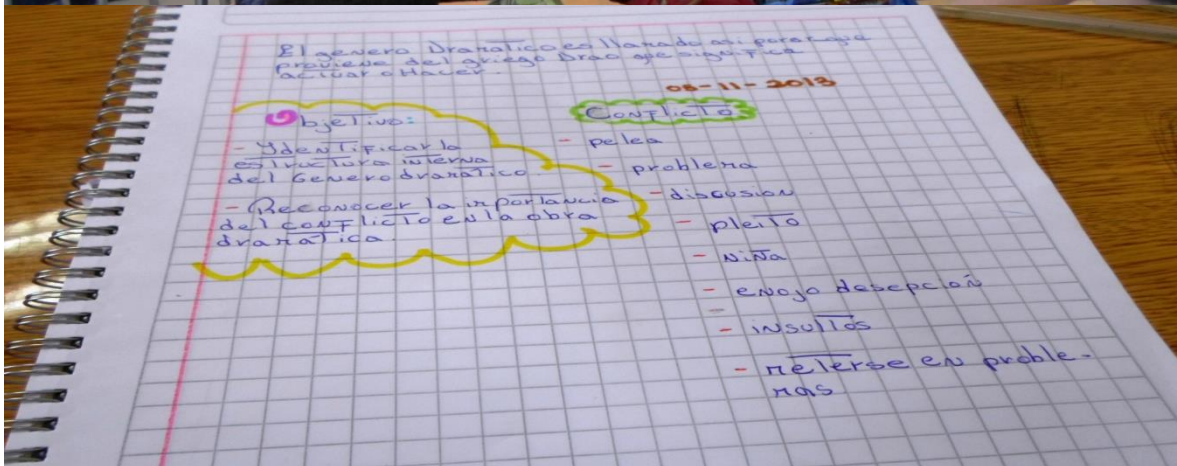 El genero Dramatico es llamado asi porque
proviene del griego Drao que significa
actuar o Hacer.
08-11-2013
Objetivo:
- Ydentificar la
estructura interna
del Genero dramatico.
- Reconocer la importancia
del conflicto en la obra
dramatica.
Conflicto
- pelea
- problema
- discusion
- pleito
- Niña
- enojo desepcion
- insultos
- meterse en proble-
mas